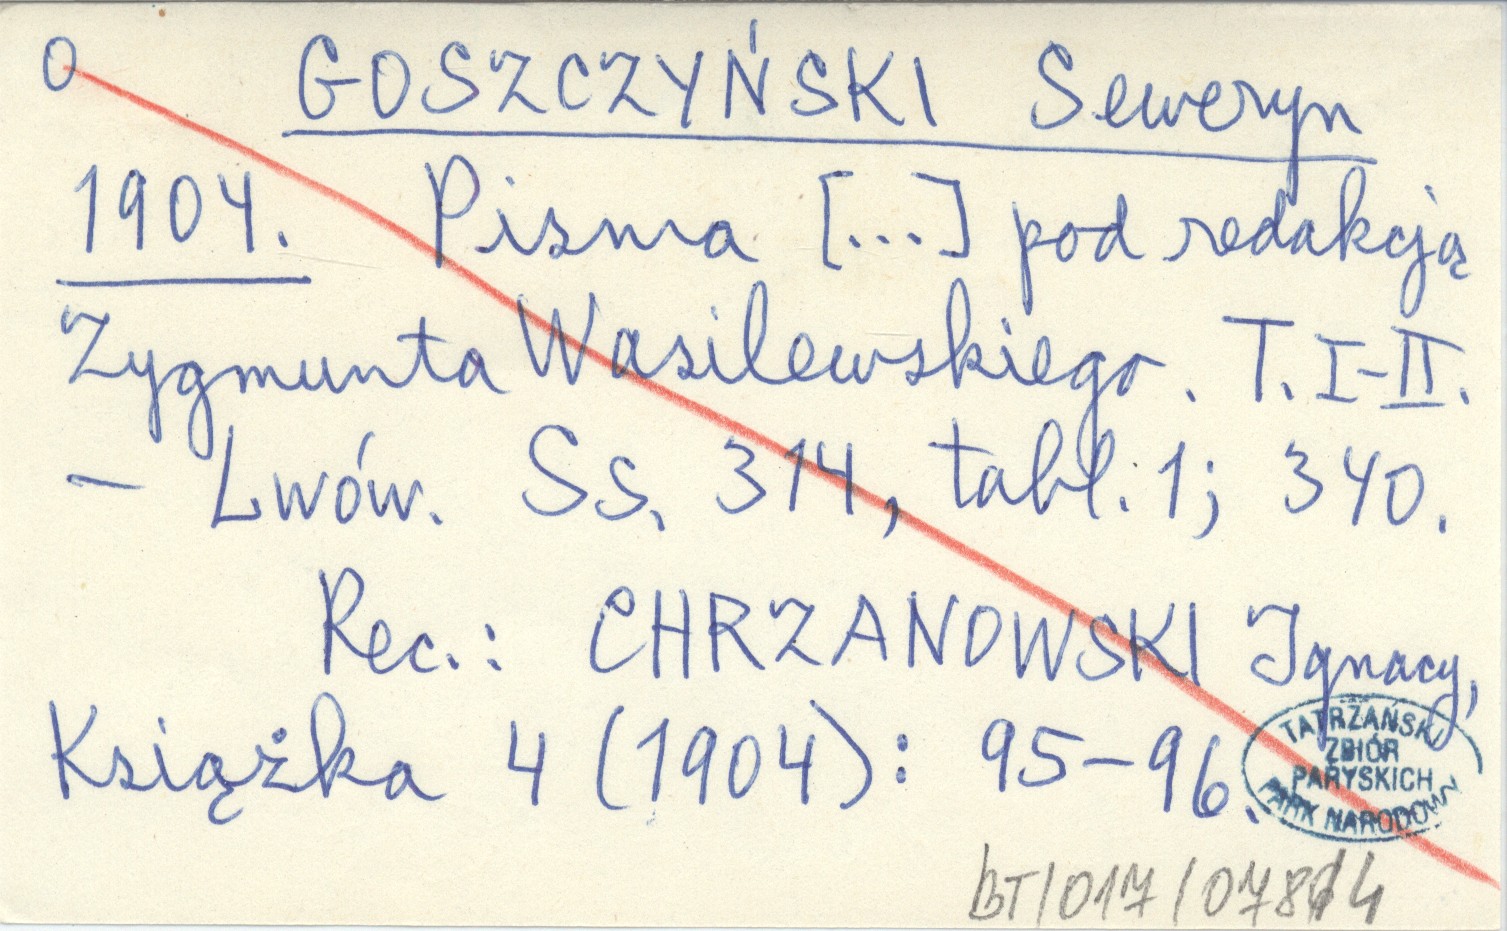 O GOSZCZYŃSKI Seweryn
1904. Pisma [...] pod redakcją
Zygmunta Wasilewskiego. T. I-II.
– Lwów. Ss. 314, tabl. 1; 340.
Rec.: CHRZANOWSKI Ignacy,
Książka 4 (1904): 95–96.
TATRZAŃSKI
ZBIÓR
PARYSKICH
PARK NARODOWY
BT/017/078/4